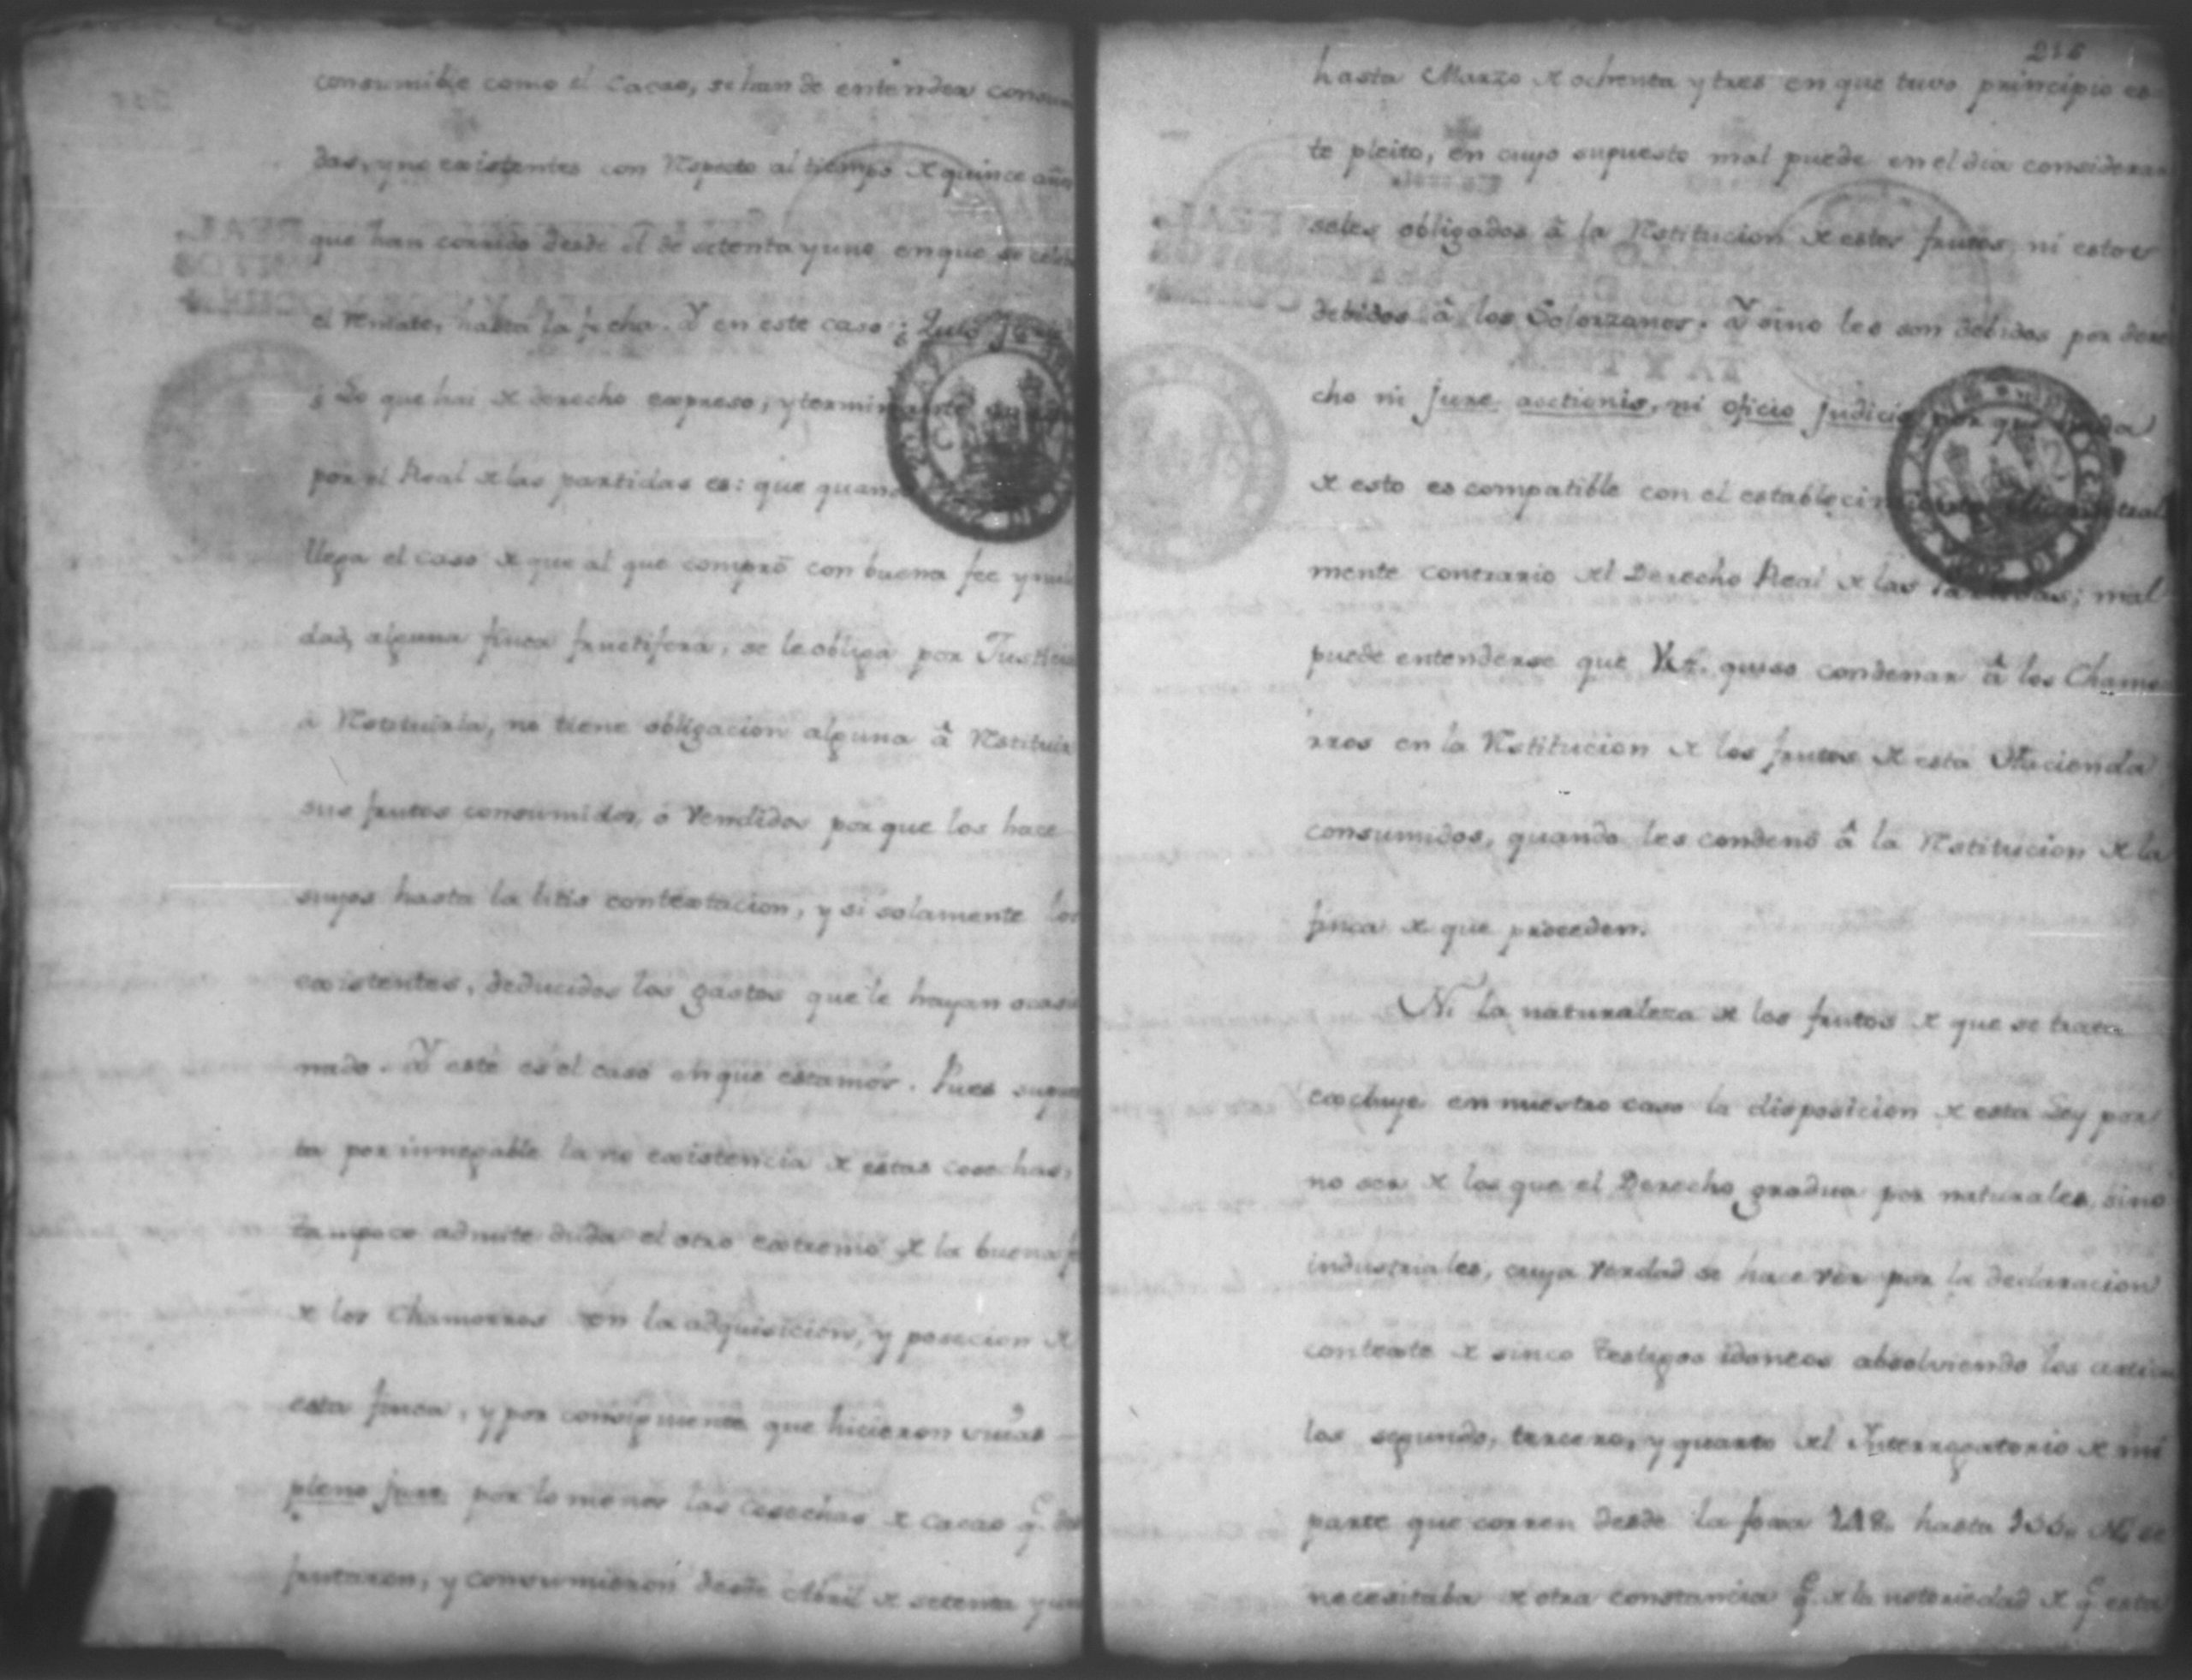 consumible como el cacao, se han de entender consum
das, y no existentes con Respecto al tiempo de quince añ
que han corrido desde el de setenta y uno en que se celeb
el Remate, hasta la fecha. Y en este caso ¿ Quid Juris
¿ Lo que hai de derecho expreso, y terminante
por el Real de las partidas es: que quando
llega el caso de que al que compró con buena fee y
dad, alguna finca fructifera, se le obliga por Justicia
à Restituirla, no tiene obligacion alguna â Restituir
sus frutos consumidos, ó Vendidos por que los hace
suyos hasta la litis contextacion, y si solamente los
existentes, deducidos los gastos que le hayan ocasio
nado. Y este es el caso en que estamos. Pues supues
ta por innegable la no existencia de estas cosechas,
tampoco admite duda el otro extremo de la buena f
de los Chamorros en la adquisicion, y posecion de
esta finca, y por consiguiente que hicieron suias
pleno jure por lo menos las cosechas de cacao q.e dis
frutaron, y consumieron desde Abril de setenta y un
216
hasta Marzo de ochenta y tres en que tuvo principio es-
te pleito, en cuyo supuesto mal puede en el dia considerar
seles obligados â la Restitucion de estos frutos, ni estos
debidos â los Solorzanos. Y sino les son debidos por dere
cho ni jure acctionis, ni oficio judicis, por que nada
de esto es compatible con el establecimiento total
mente contrario del Derecho Real de las Partidas; mal
puede entenderse que quiso condenar â los Chamo
rros en la Restitucion de los frutos de esta Hacienda
consumidos, quando les condenó â la Restitucion de la
finca de que proceden.
Ni la naturaleza de los frutos de que se trata
excluye en nuestro caso la disposicion de esta Ley por
no ser de los que el Derecho gradua por naturales, sino
industriales, cuya Verdad se hace ver por la declaracion
conteste de sinco testigos idoneos absolviendo los articu
los segundo, tercero, y quarto del Interrogatorio de mi
parte que corren desde la foxa hasta Ni se
necesitaba de otra constancia q.e de la notoriedad de q.e esta